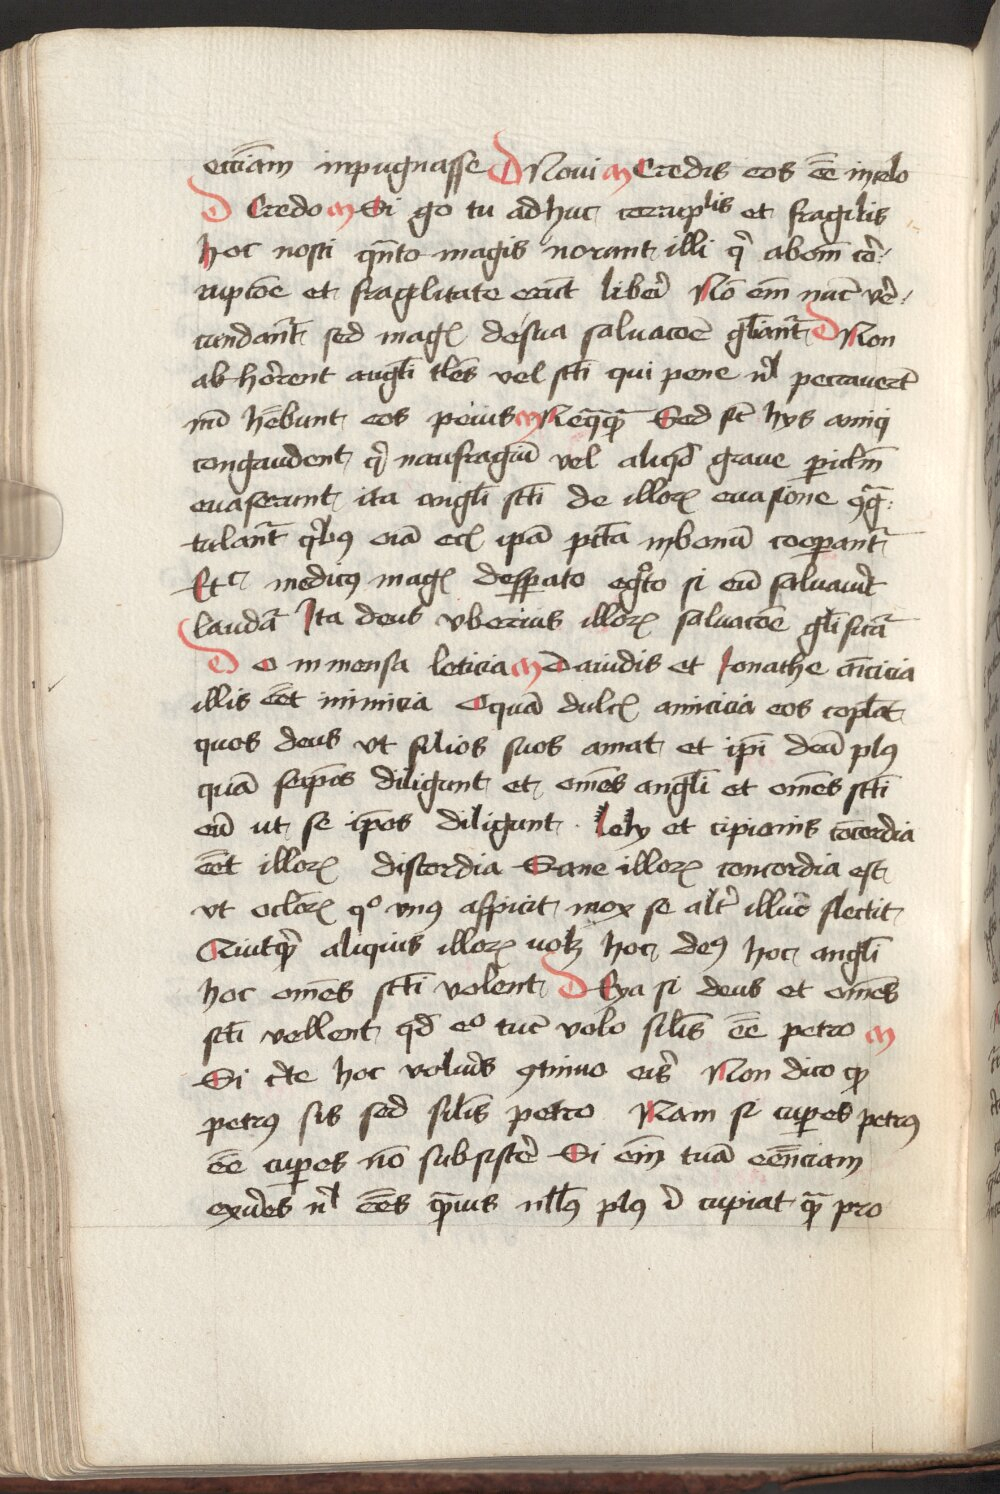 eccĩam inpugnasse D Noui M Credis eos ēe in celo
D Credo M Si go tu adhuc corruptlis et fragilis
hoc nosti qñto magis norunt illi qͥ ab om̄ cor̄
rupcōe et fragilitate erūt liberi Nō em̄ nūc vē
cundant᷑ sed magꝭ de sua saluacōe gl̄iant᷑ D Non
abhorrent angl̄i tles vel scti qui pene nl̄ peccauer̄t
nū hēbunt eos peius M Neqq̄ Sed st̄ hys amici
congaudent qͥ naufragiū vel aliqd̄ graue piclm̄
euaserunt ita angl̄i scti de illoꝝ euasione ꝯg̃
tulant᷑ qͥbꝰ eciā ecꝭ ip̄a pctā in bonū coop̱ant᷑
Etc medicꝰ magꝭ despato egͦto si eū saluauit
laudat᷑ Ita deus vberius illoꝝ saluacōe gl̄ificat᷑
D O inmensa leticia M Dauidis et Jonathe amicicia
illis eēt inimicia O quā dulcꝭ amicicia eos coplat
quos deus vt filios suos amat et ip̄i deū plꝰ
quā seip̄os diligunt et om̄es angl̄i et om̄es scti
eū ut se ip̄os diligunt . lely et cipionis cōcordia
eēt illoꝝ discordia Sane illoꝝ concordia est
vt oclōꝝ qͦ vnꝰ aspicit mox se altͥ illuc flectit
aliquis illoꝝ uolꝫ hoc deꝰ hoc angl̄i
hoc om̄es scti volent D Eya si deus et om̄es
scti vellent qd̄ eͦ tūc volo silīs ēe petro M
Si cͥte hoc volueis ꝯtinuo eis Non dico ꝙ
petrus sis sed silīs petro Nam si cupes petrꝰ
ēe cuperes nō subsistē Si em̄ tuā eēnciam
exues nl̄ eēs prius nlꝰ plꝰ cupiat q̄ pro